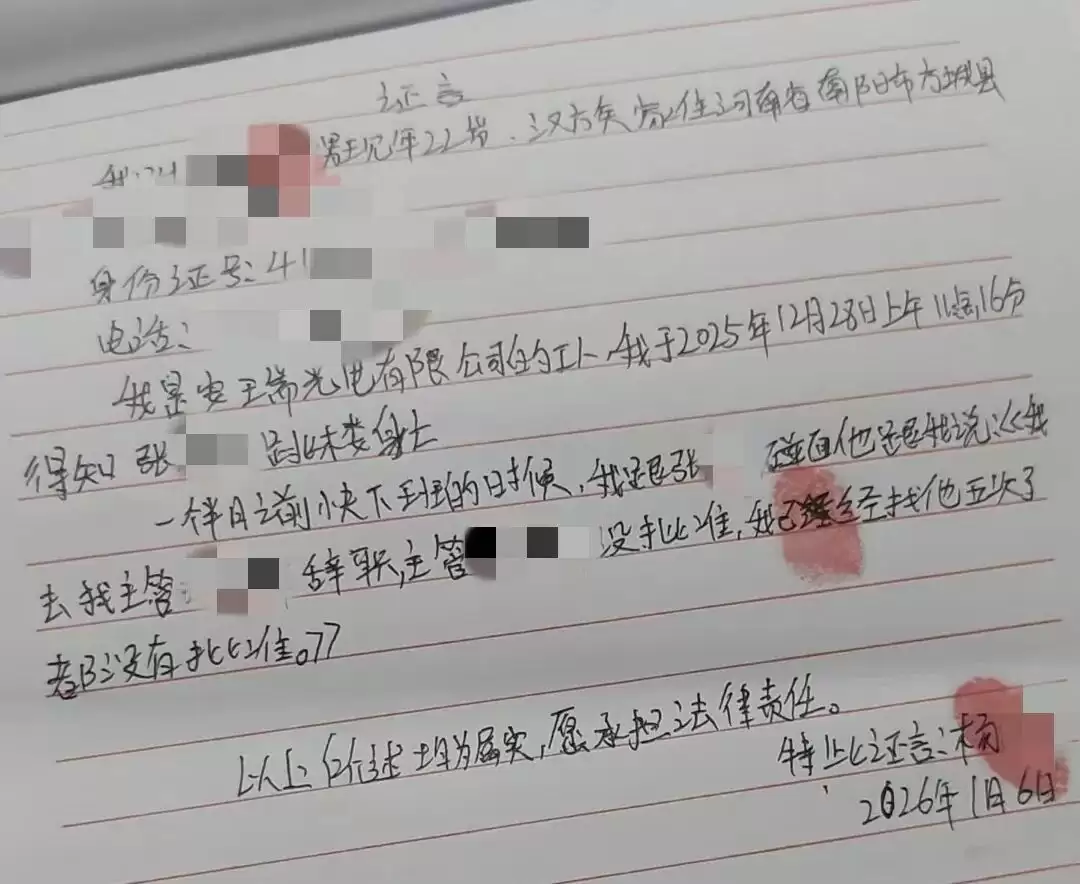 证言
我叫 男现年22岁、汉族家住河南省南阳市方城县
身份证号:41
电话:
我是安王瑞光电有限公司的工人,我于2025年12月28日上午11点16分
得知张 跳楼身亡
一个半月之前小夜下班的时候,我跟张 碰面他跟我说:《我
去找主管 辞职,主管 没批准,我已经找他五次了
都没有批准。》
以上所述均为属实,愿承担法律责任。
特此证言:杨
2026年1月6日